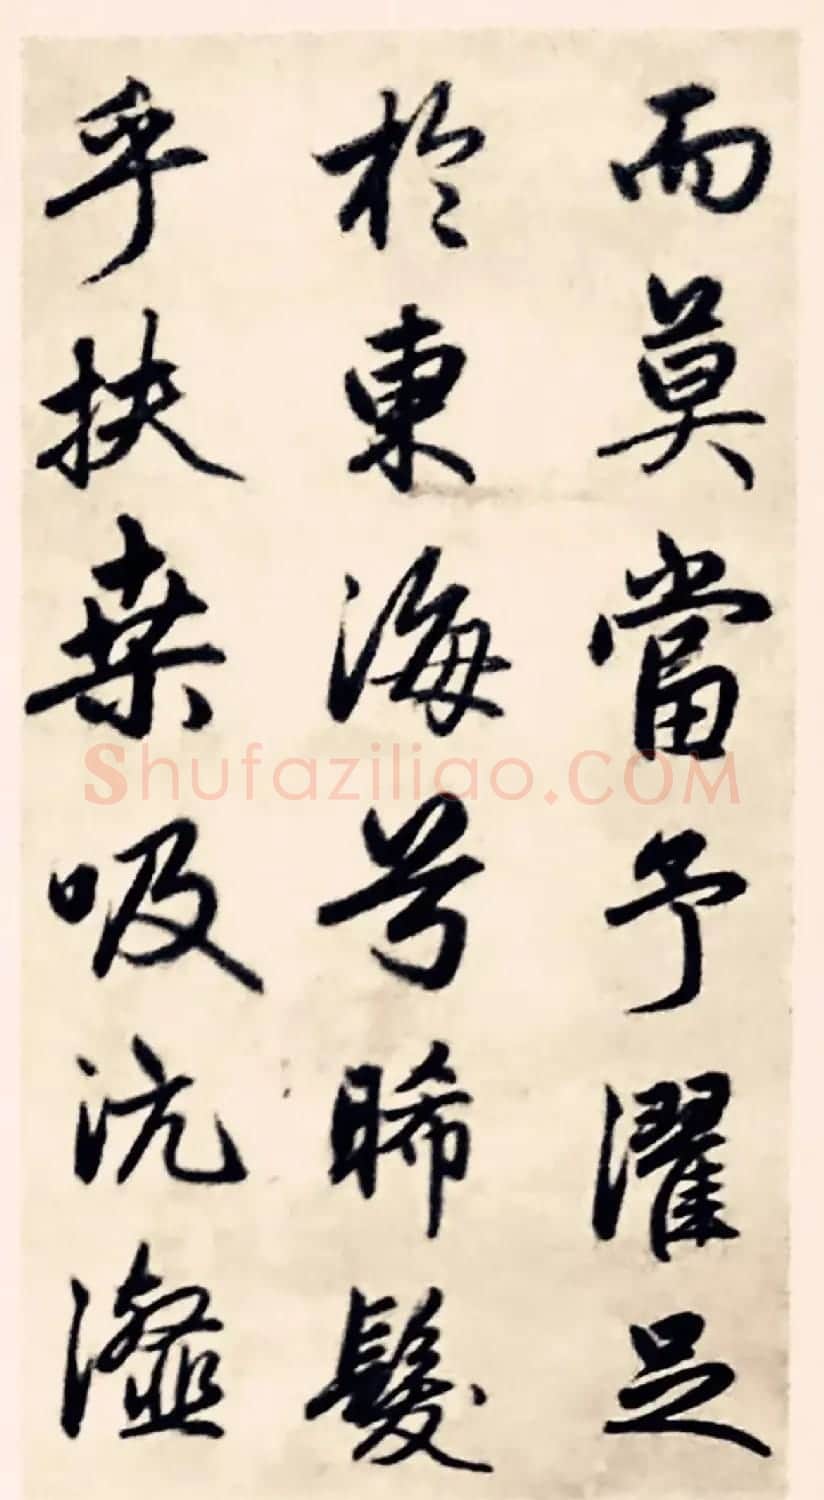 而莫當予濯足
於東海兮晞髮
乎扶桑吸沆瀣
Shufaziliao.COM